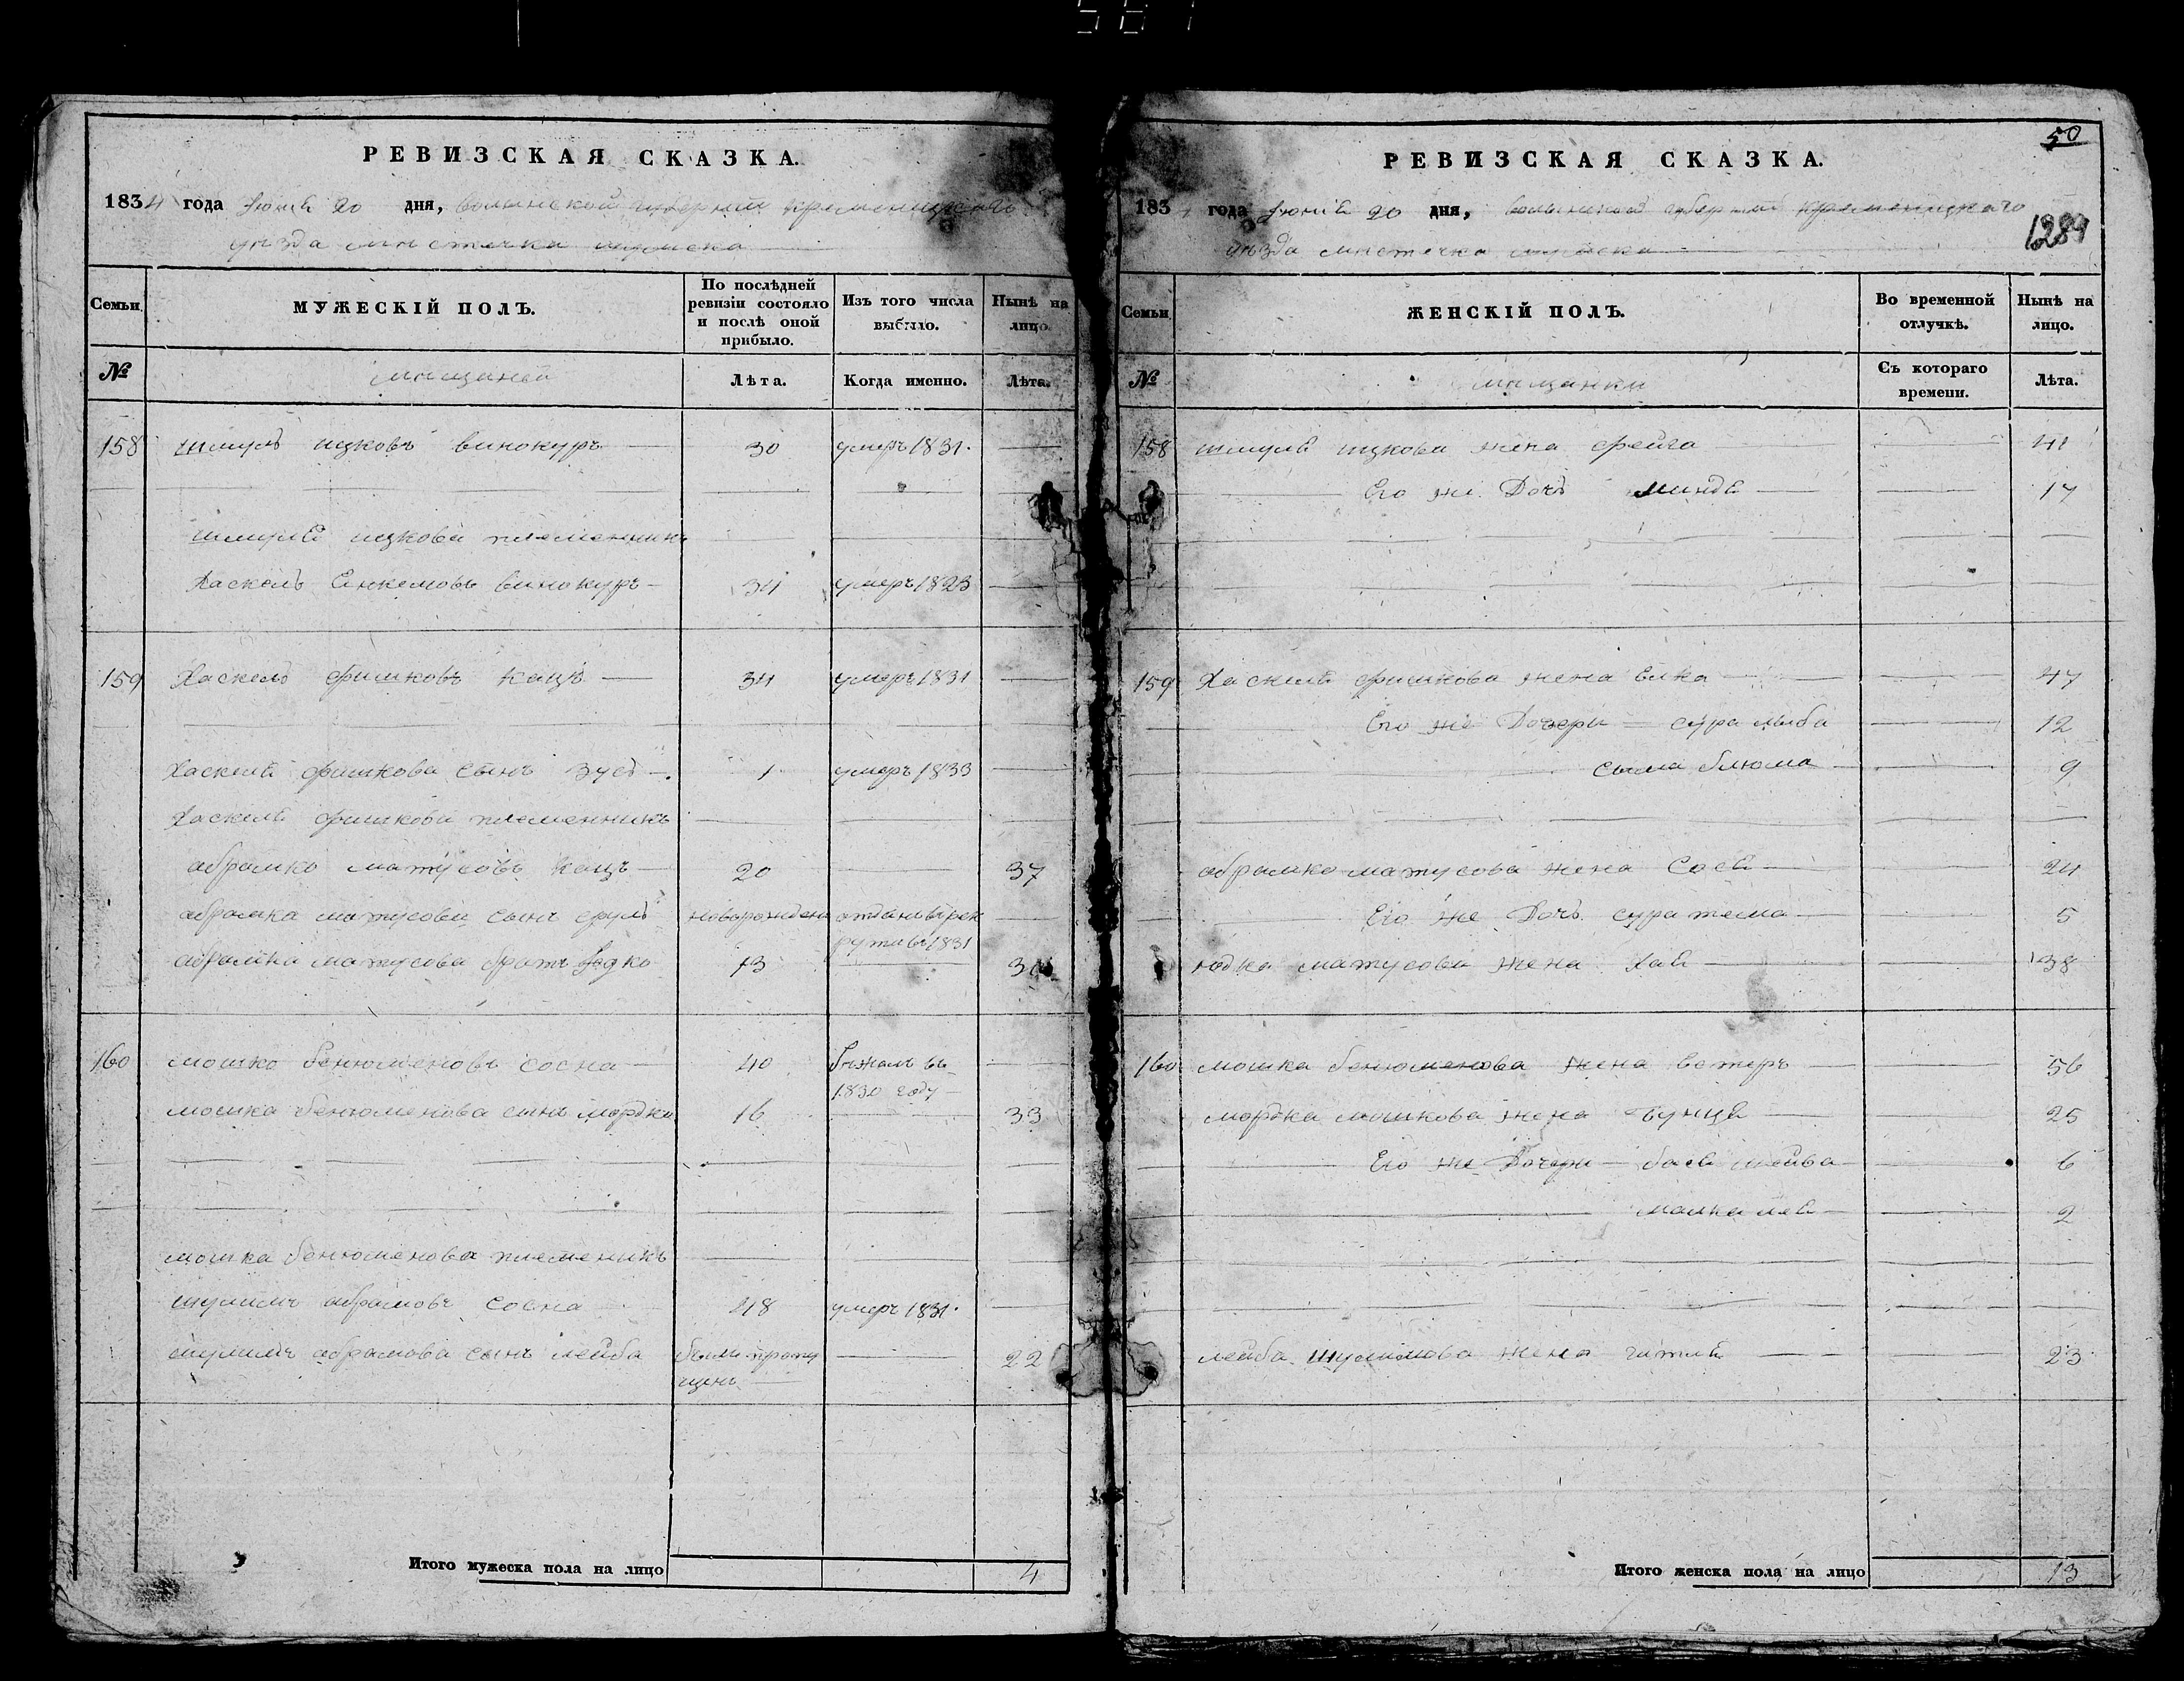 РЕВИЗСКАЯ СКАЗКА.
1834 года Июня 20 дня, волынской губернии кременецкаго
уезда местечка
Семьи.
МУЖЕСКІЙ ПОЛЪ.
По послѣдней ревизіи состояло и послѣ оной прибыло.
Изъ того числа выбыло.
Нынѣ на лицо.
№
мещаней
Лѣта.
Когда именно.
Лѣта.
158 шмуль ицковъ винокуръ 30 умеръ 1831.
шмуля ицкова племенникъ
Хаскель Енкемовъ винокуръ 34 умеръ 1823
159 Хаскель фишковъ кацъ 34 умеръ 1831
Хаскеля фишкова сынъ зусь 1 умеръ 1833
Хаскеля фишкова племенникъ
абрамко матусовъ кацъ 20 37
абрамка матусова сынъ сруль новорожденъ отданъ въ рек
руты въ 1831
абрамка матусова братъ Іодко 13 30
160 мошко бенюменовъ сосна 40 бежалъ въ
1830 году
мошка бенюменова сынъ мордко 16 33
мошка бенюменова племеникъ
шулимъ абрамовъ сосна 48 умеръ 1831.
шулимъ абрамова сынъ лейба былъ пропу 22
щенъ
Итого мужеска пола на лицо 4
50
РЕВИЗСКАЯ СКАЗКА.
1834 года Июня 20 дня, волынской губернии кременецкаго
1289
уезда местечка
Семьи.
ЖЕНСКІЙ ПОЛЪ.
Во временной отлучкѣ.
Нынѣ на лицо.
№
мещанки
Съ котораго времени.
Лѣта.
158 шмуля ицкова жена фейга 41
Его же дочь миндя 17
159 Хаскеля фишкова жена Енка 47
Его же дочери сура лыба 12
сыма блюма 9
абрамко матусова жена Сося 24
Его же дочь сура тема 5
юдка матусова жена Хая 38
160 мошка бенюменова жена Естеръ 56
мордка мошкова жена бунця 25
Его же дочери бася шейва 6
малка лея 2
лейба шулимова жена гитля 23
Итого женска пола на лицо 13